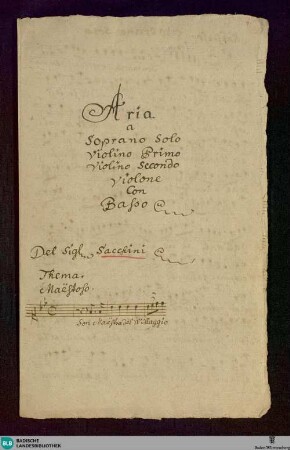 Aria
a
Soprano Solo
Violino Primo
Violino Secondo
Violone
Con
Basso
Del Sigl. Sacchini
Thema.
Maëstoso.
del Villaggio
BLB BADISCHE
LANDESBIBLIOTHEK
Baden-Württemberg